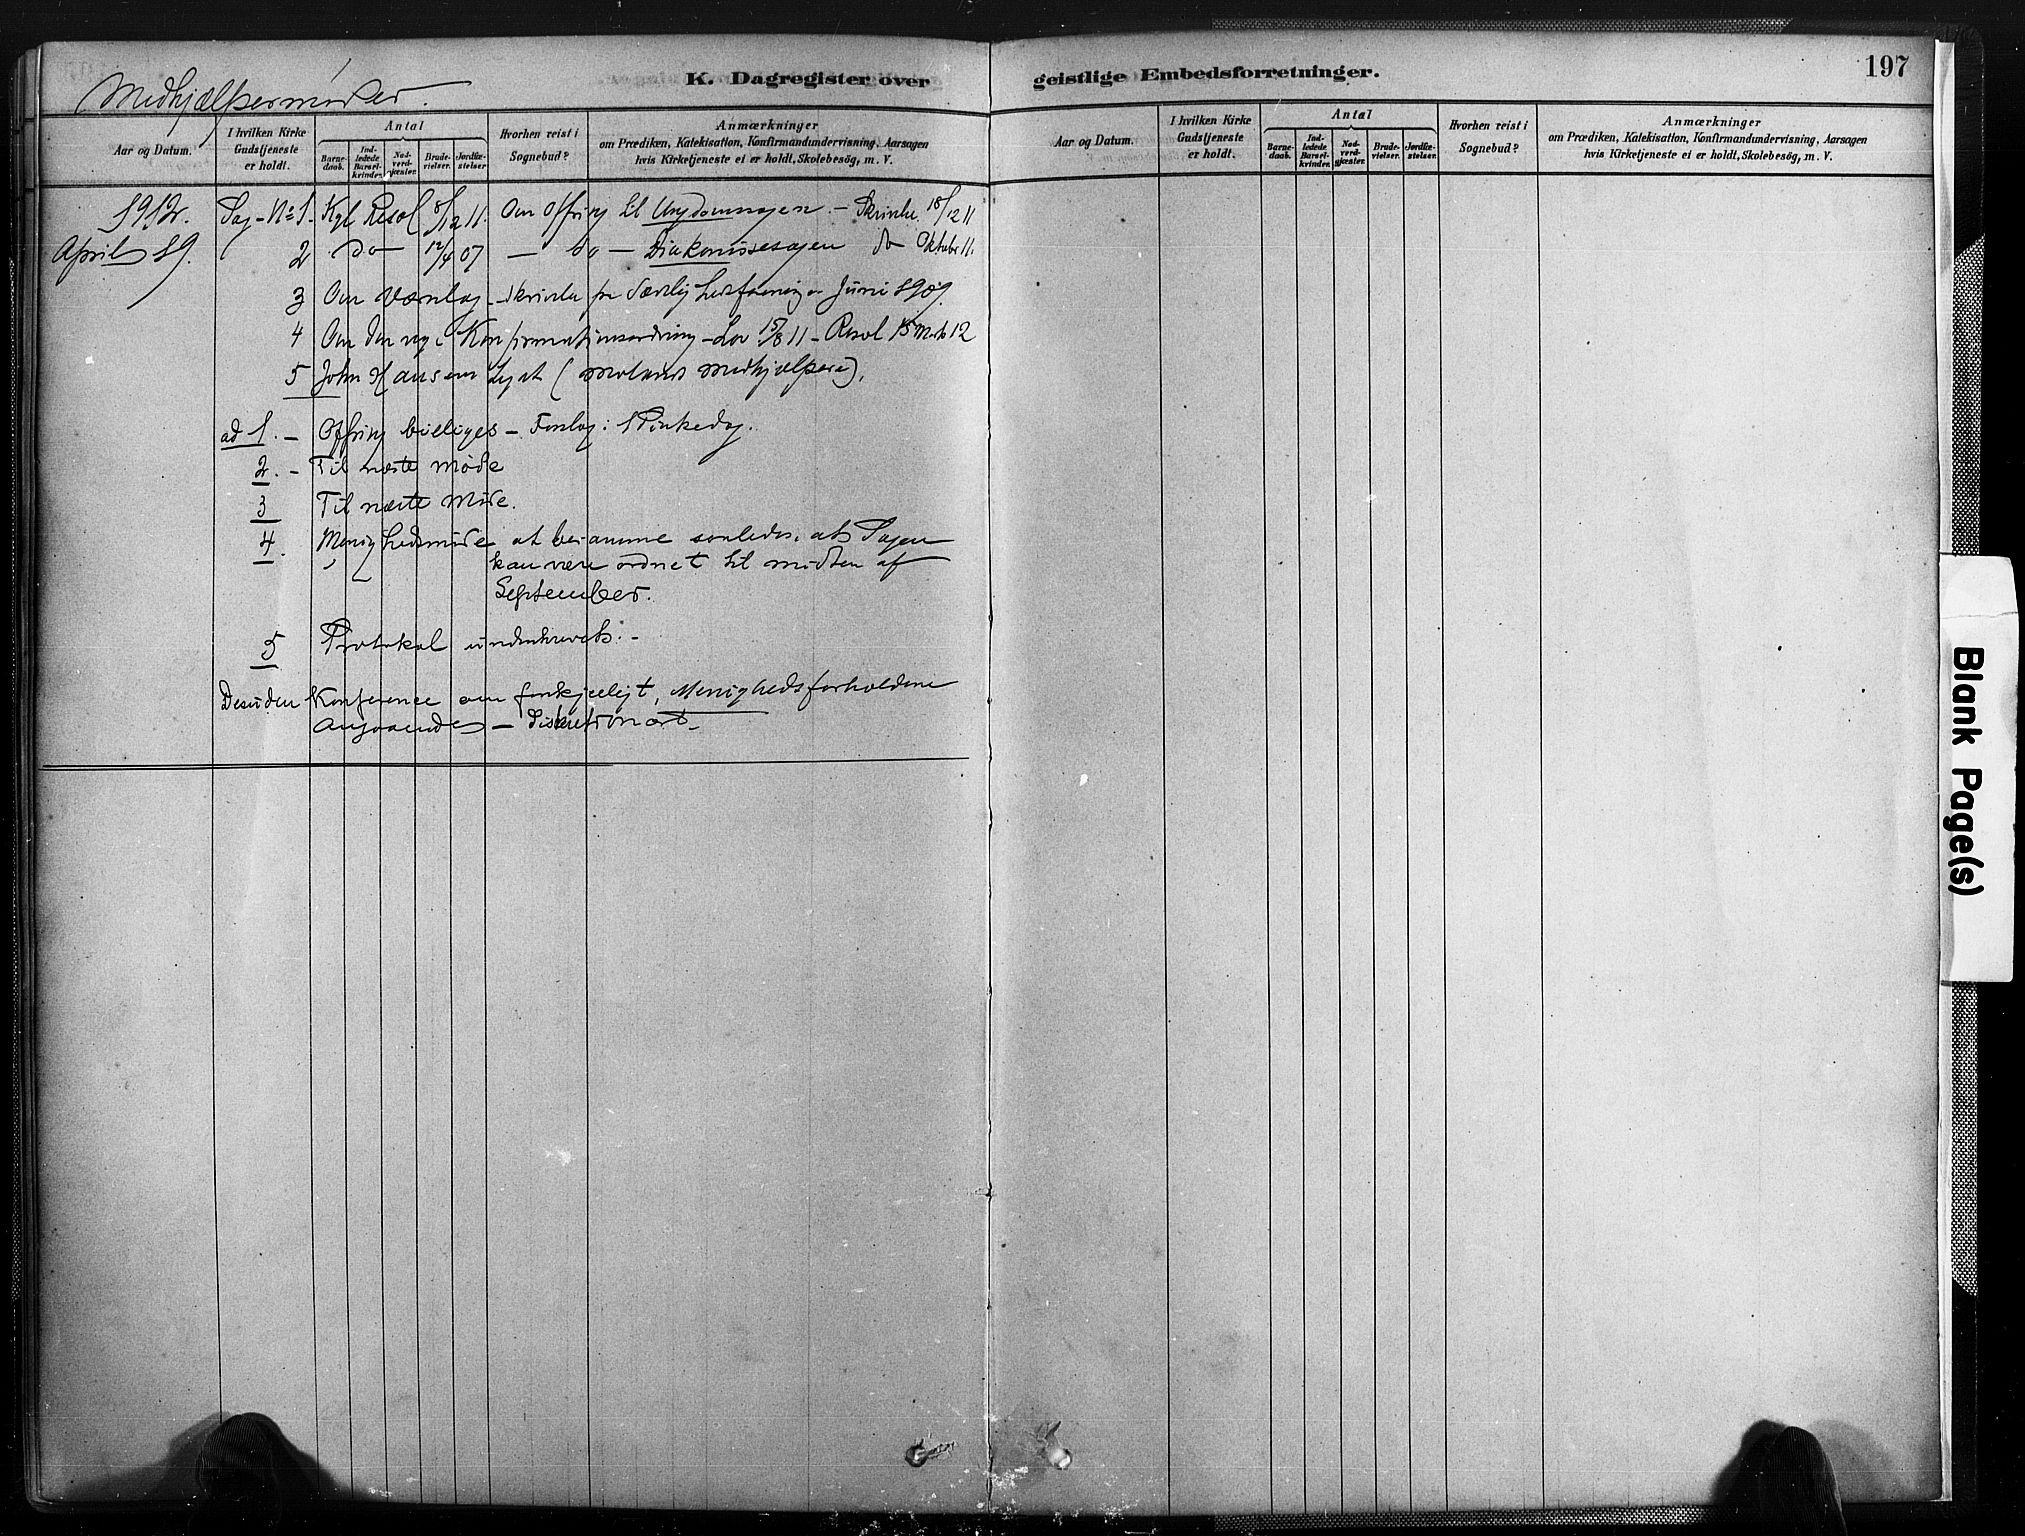 Medhjælpermøder.
K. Dagregister over
geistlige Embedsforretninger.
197
Aar og Datum.
I hvilken Kirke Gudstjeneste er holdt.
Antal
Barnedaab.
Indledede Barselkvinder.
Nadverdgjæster.
Brudevielser.
Jordfæstelser
Hvorhen reist i Sognebud?
Anmærkninger
om Prædiken, Katekisation, Konfirmandundervisning, Aarsagen
hvis Kirketjeneste ei er holdt, Skolebesøg, m. V.
Aar og Datum.
I hvilken Kirke Gudstjeneste er holdt.
Antal
Barnedaab.
Indledede Barselkvinder.
Nadverdgjæster.
Brudevielser.
Jordfæstelser.
Hvorhen reist i Sognebud?
Anmærkninger
om Prædiken, Katekisation, Konfirmandundervisning, Aarsagen
hvis Kirketjeneste ei er holdt, Skolebesøg, m. V.
1912. Sag - No 1. Kgl Resol 8/12 11. Om Offring til Ungdomssagen. - Skrivelse 18/12 11
April 19. 2 do 12/4 07 - do - Diakonissesagen do Oktober 11.
3 Om Værnelag - Skrivelse fra Juni 1909.
4 Om den nye Konfirmationsordning - Lov 15/8 11 - Resol 15 Mrts 12
5 John Hansen (medhjælpere),
ad 1. - Offring bevilges - Forslag: 1 Pinkedag.
2. - Til næste Møde
3 Til næste Møde.
4. Menighedsmøde at beramme saaledes, at Sagen
kan være ordnet til midten af
September.
5 Protokol underskreves. -
Desuden Konference om forskjelligt, Menighedsforholdene
angaaende - Diskretionært -
Blank Page(s)